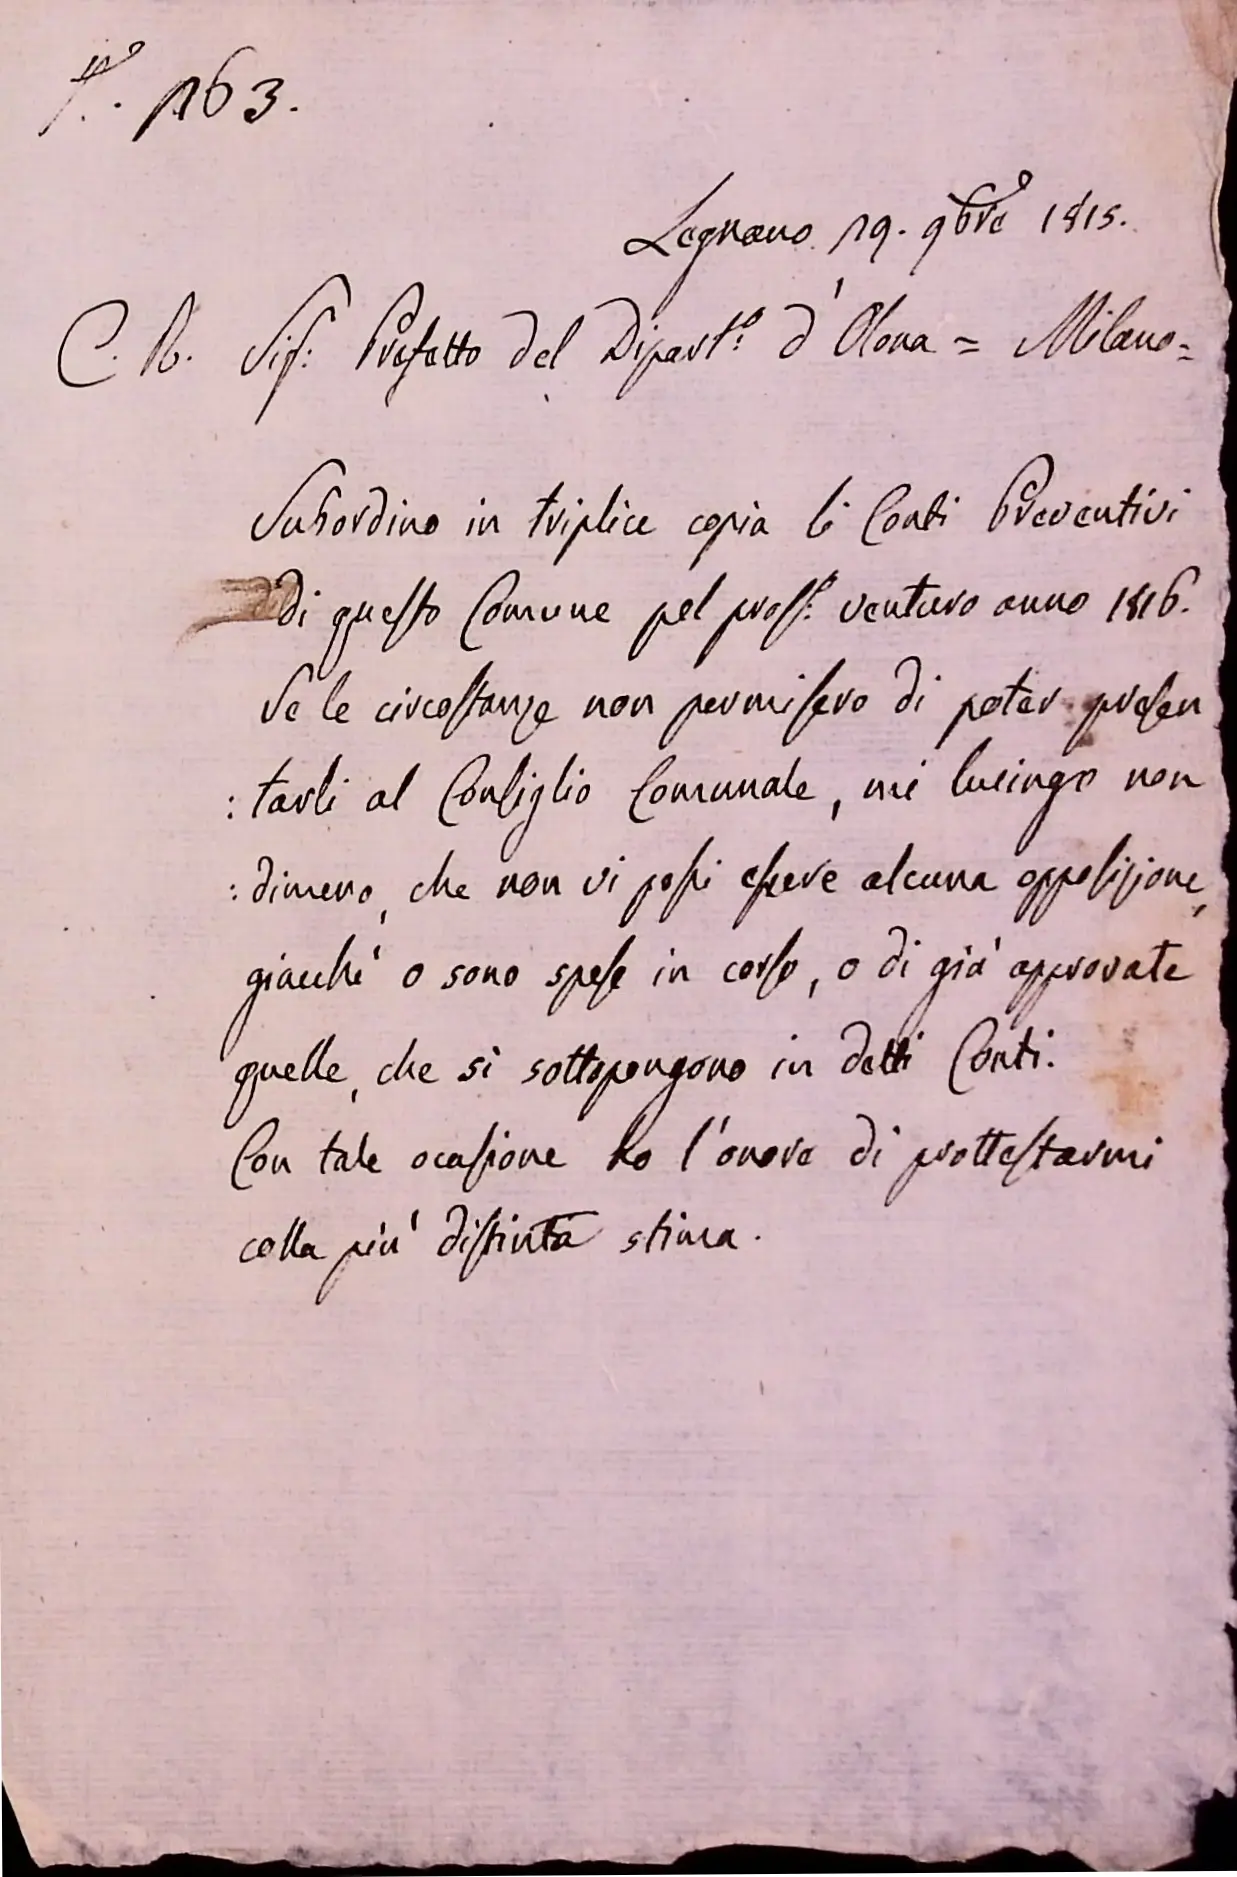 N.° 163.
Legnano 19. 9bre 1815.
C. R. Sig: Prefetto del Dipart:° d'Olona = Milano =
Subordino in triplice copia li Conti Preventivi
di questo Comune pel pross:° venturo anno 1816.
Se le circostanze non permisero di poter presen
: tarli al Consiglio Comunale, mi lusingo non
: dimeno, che non vi possi essere alcuna opposizione,
giacchè o sono spese in corso, o di già approvate
quelle, che si sottopongono in detti Conti.
Con tale ocasione ho l'onore di prottestarmi
colla più distinta stima.